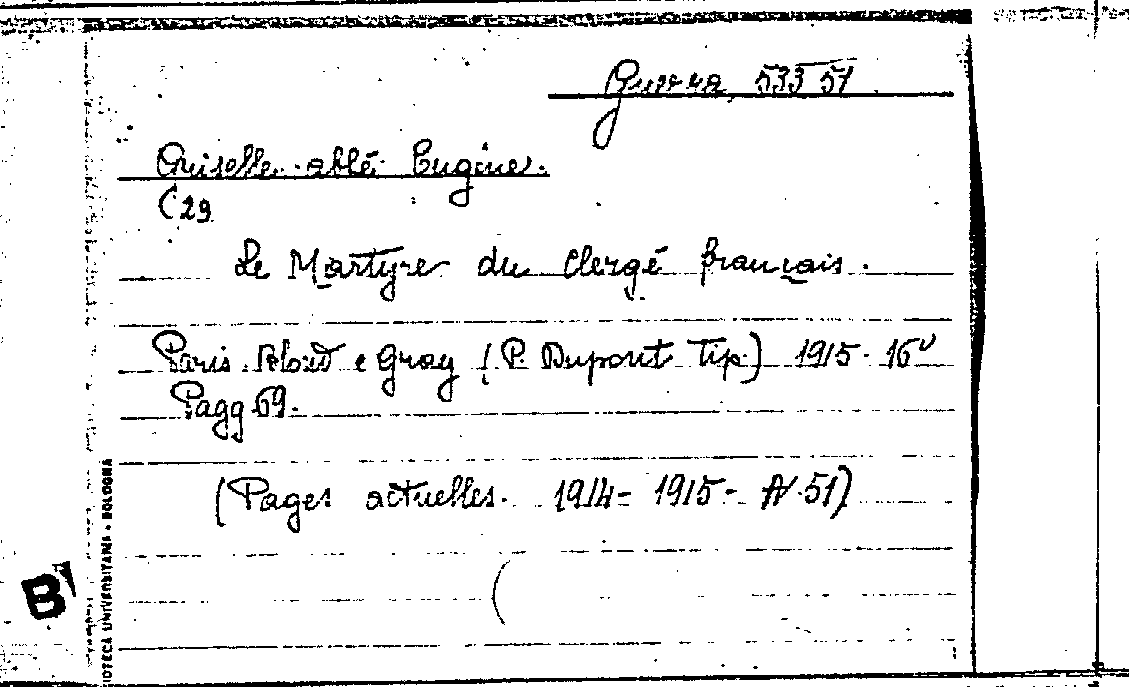 Guerra, 533 51
Griselle abbé Eugène.
(29
Le Martyre du Clergé français.
Paris. Bloud e Gray (P. Dupont Tip.) 1915. 16°
Pagg 69.
(Pages actuelles. 1914 = 1915 - N. 51)
IOTECA UNIVERSITARIA • BOLOGNA
B